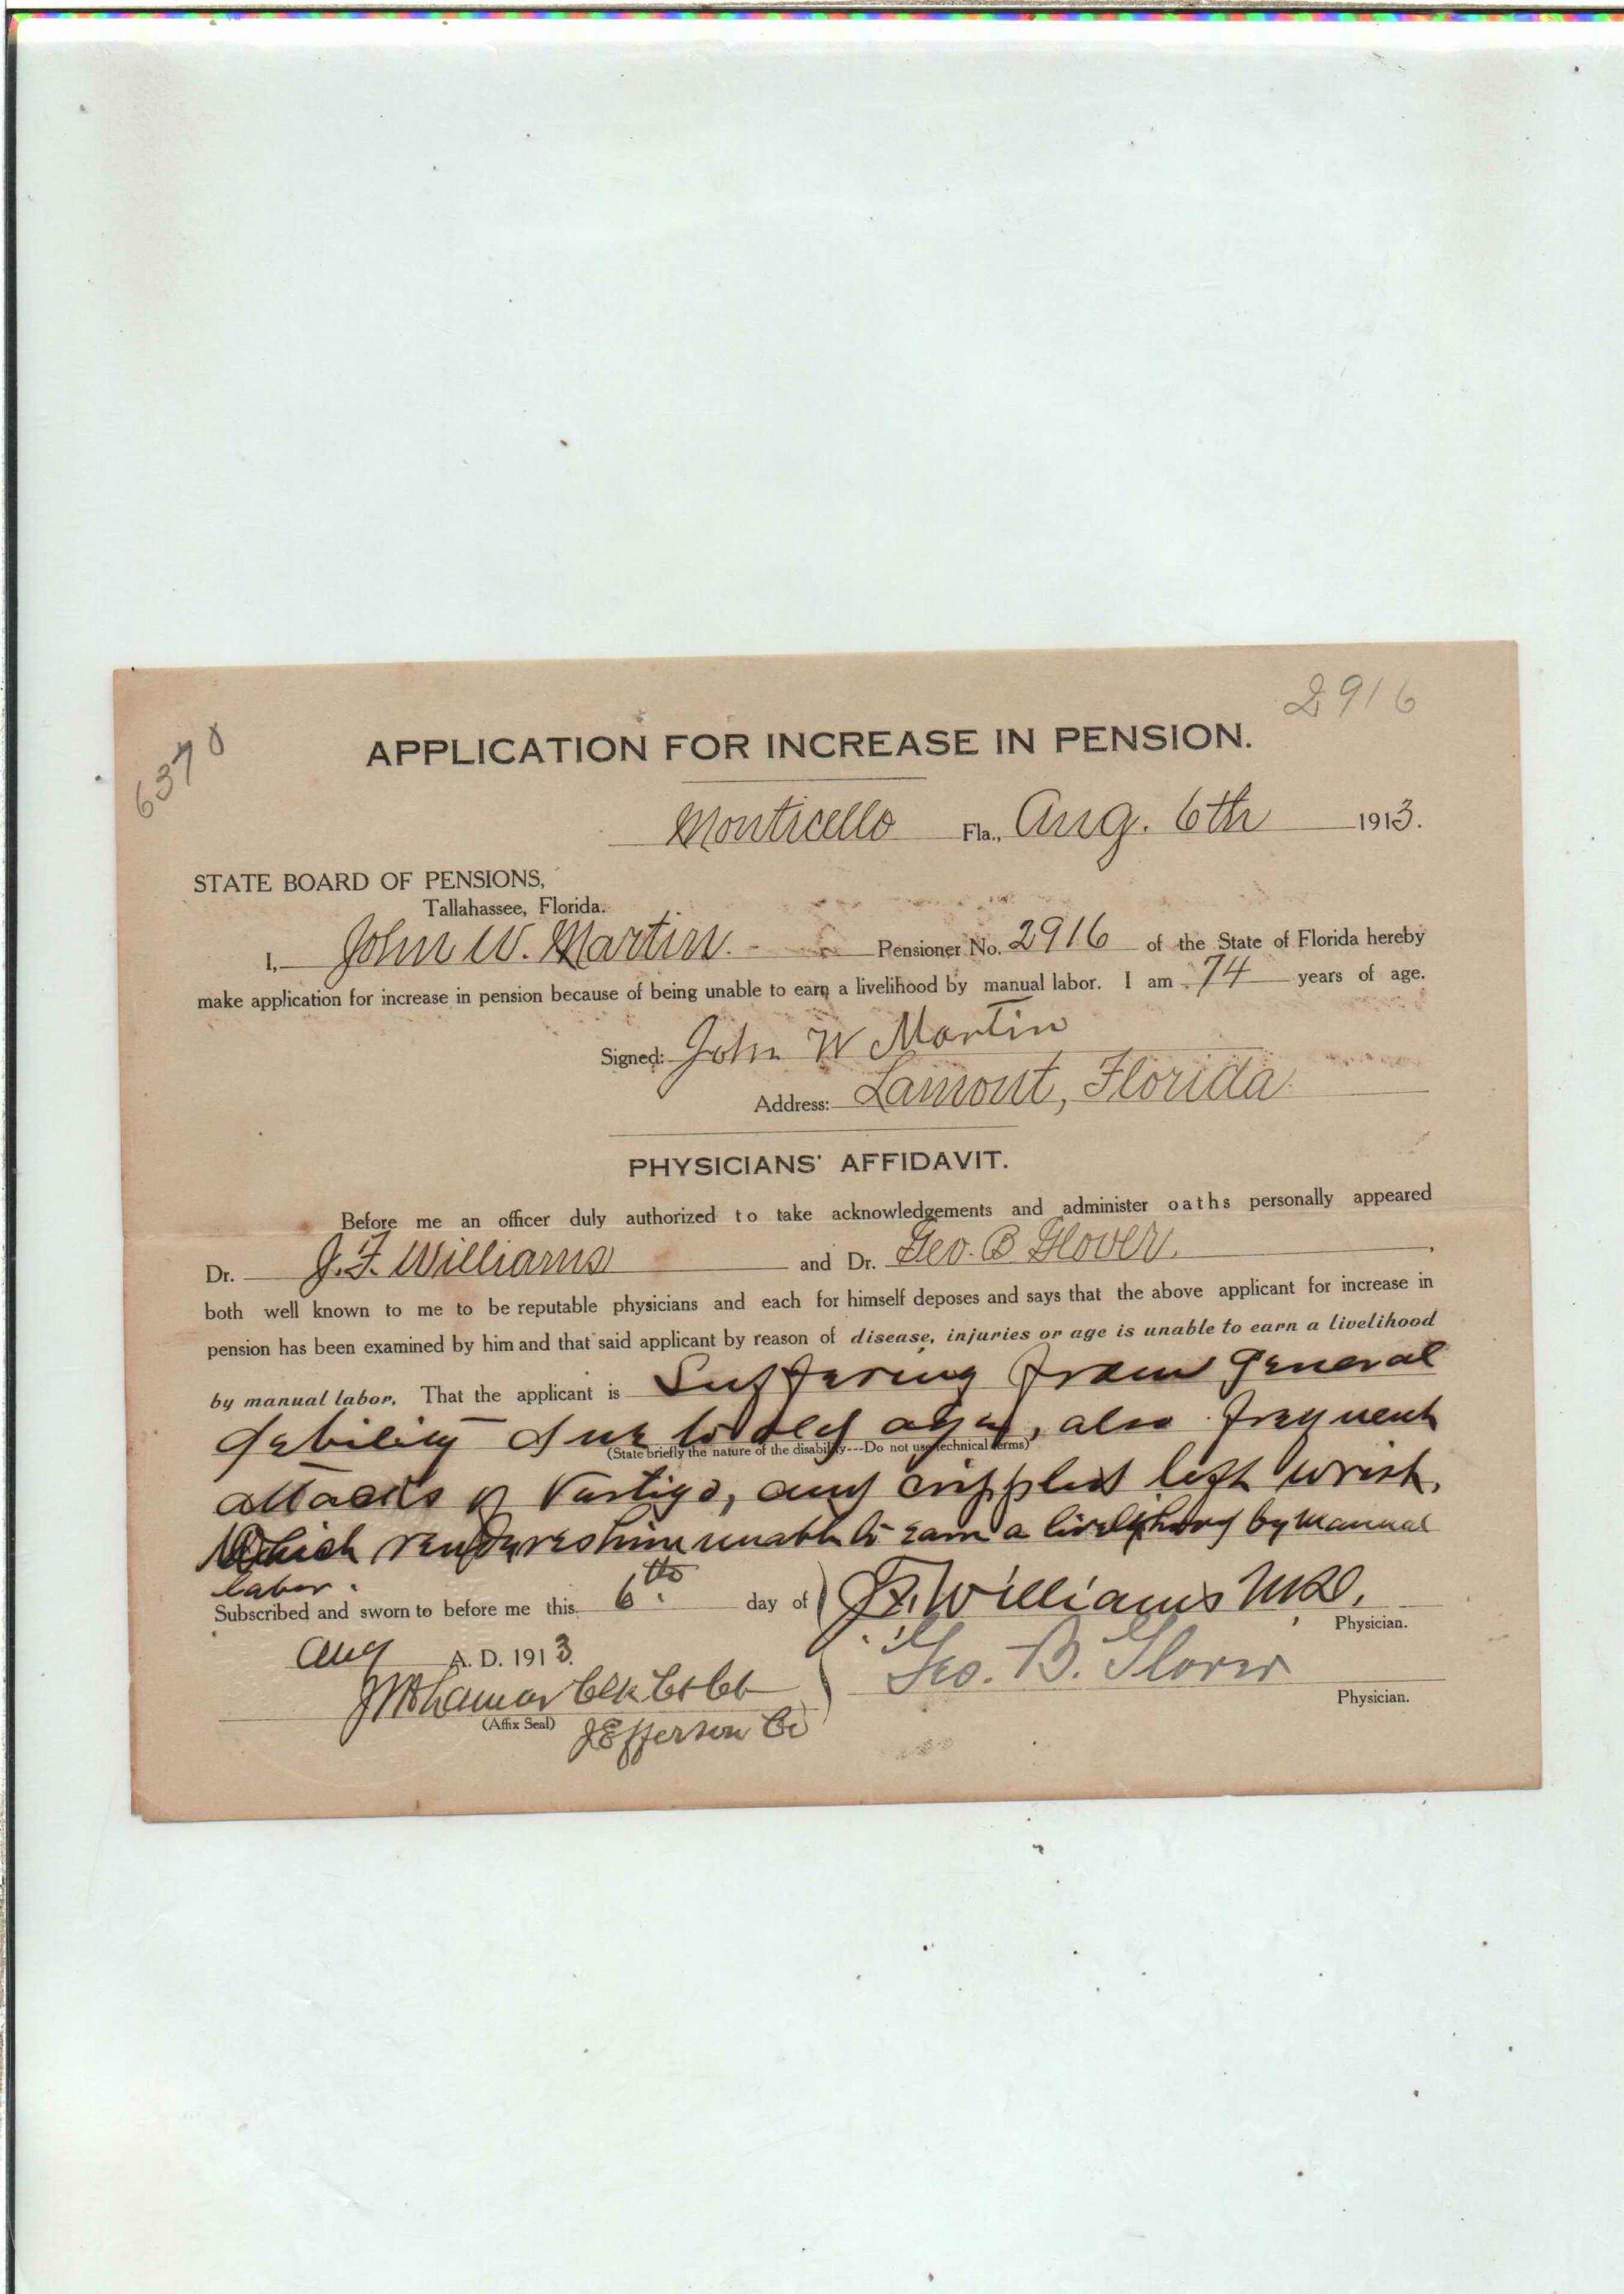 2916
6370
APPLICATION FOR INCREASE IN PENSION.
Monticello Fla., Aug. 6th 1913.
STATE BOARD OF PENSIONS,
Tallahassee, Florida.
I, John W. Martin. Pensioner No. 2916 of the State of Florida hereby
make application for increase in pension because of being unable to earn a livelihood by manual labor. I am 74 years of age.
Signed: John W Martin
Address: Lamont, Florida.
PHYSICIANS' AFFIDAVIT.
Before me an officer duly authorized to take acknowledgements and administer oaths personally appeared
Dr. J. F. Williams and Dr. Geo. B Glover.,
both well known to me to be reputable physicians and each for himself deposes and says that the above applicant for increase in
pension has been examined by him and that said applicant by reason of disease, injuries or age is unable to earn a livelihood
by manual labor. That the applicant is Suffering from General
debility due to old age, also frequent
(State briefly the nature of the disability---Do not use technical terms)
attacks of Vertigo, and crippled left wrist,
Which renders him unable to earn a livelihood by manual
labor.
Subscribed and sworn to before me this 6th. day of
J. F. Williams M.D.
Physician.
Aug A. D. 1913.
Geo. B. Glover
Physician.
Lamar Clk Ct Ct
(Affix Seal)
Jefferson Co